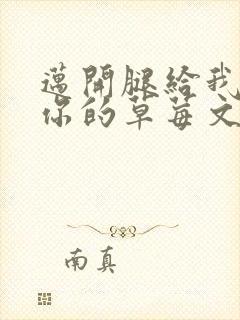 邁開腿給我
你的草莓文
南真